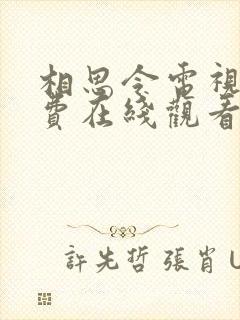 相思令電視
費在綫觀看
許先哲 張肖 U